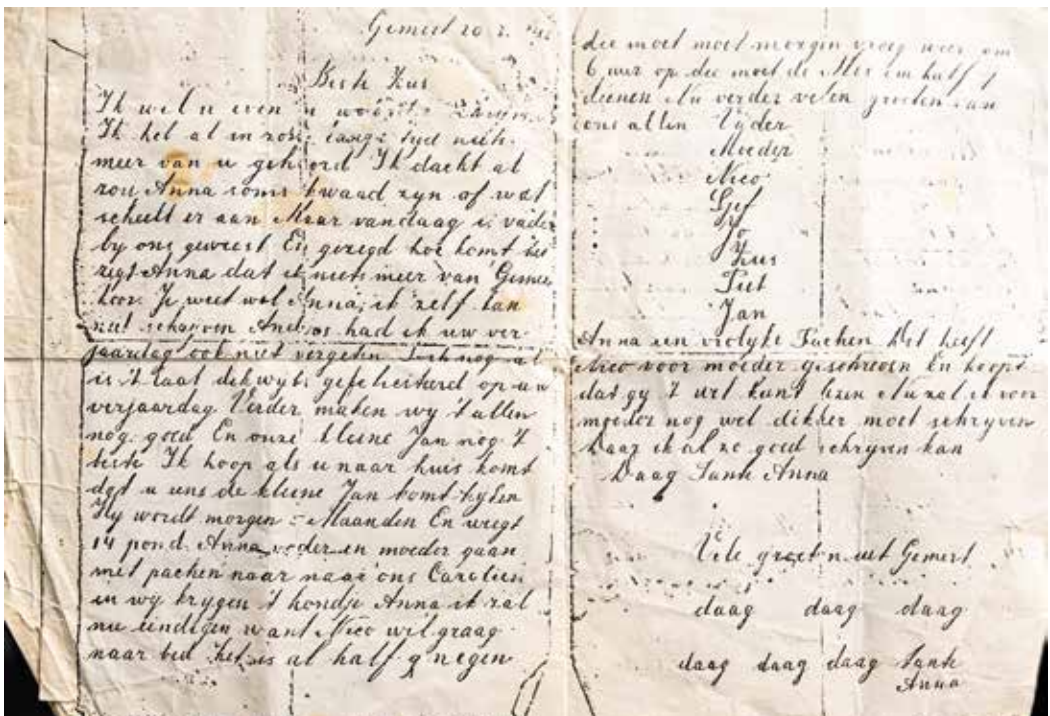 Gemert 20 3
Beste Zus
Ik wil u even 'n woordje
Ik heb al in zon lange tyd niets
meer van u gehoord Ik dacht al
zou Anna soms kwaad zyn of wat
scheelt er aan Maar vandaag is vader
by ons geweest En gezegd hoe komt het
zegt Anna dat ik niets meer van Gemer
hoor. Je weet wel Anna, ik zelf kan
niet schryven Anders had ik uw ver-
jaardag ook niet vergeten Toch nog al
is 't laat dikwyls gefeliciteerd op uw
verjaardag Verder maken wy 't allen
nog goed En onze kleine Jan nog 't
beste Ik hoop als u naar huis komt
dat u eens de kleine Jan komt kyken
Hy wordt morgen Maanden En weegt
14 pond. Anna vader en moeder gaan
met pachen naar naar ons Carolien
en wy krygen 't hondje Anna ik zal
nu eindigen want Nico wil graag
naar bed het is al half 9 negen
die moet moet morgen vroeg weer om
6 uur op die moet de Mis om half 7
dienen Nu verder velen groeten van
ons allen Vader
Moeder
Nico
Gef
Jo
Zus
Piet
Jan
Anna een vrolyke Pachen dit heeft
Nico voor moeder geschreven En hoopt
dat gy 't wel kunt lezen Nu zal ik voor
moeder nog wel dikker moet schryven
Daag ik al zo goed schryven kan
Daag Tank Anna
Vele groeten uit Gemert
daag daag daag
daag daag daag Tank
Anna